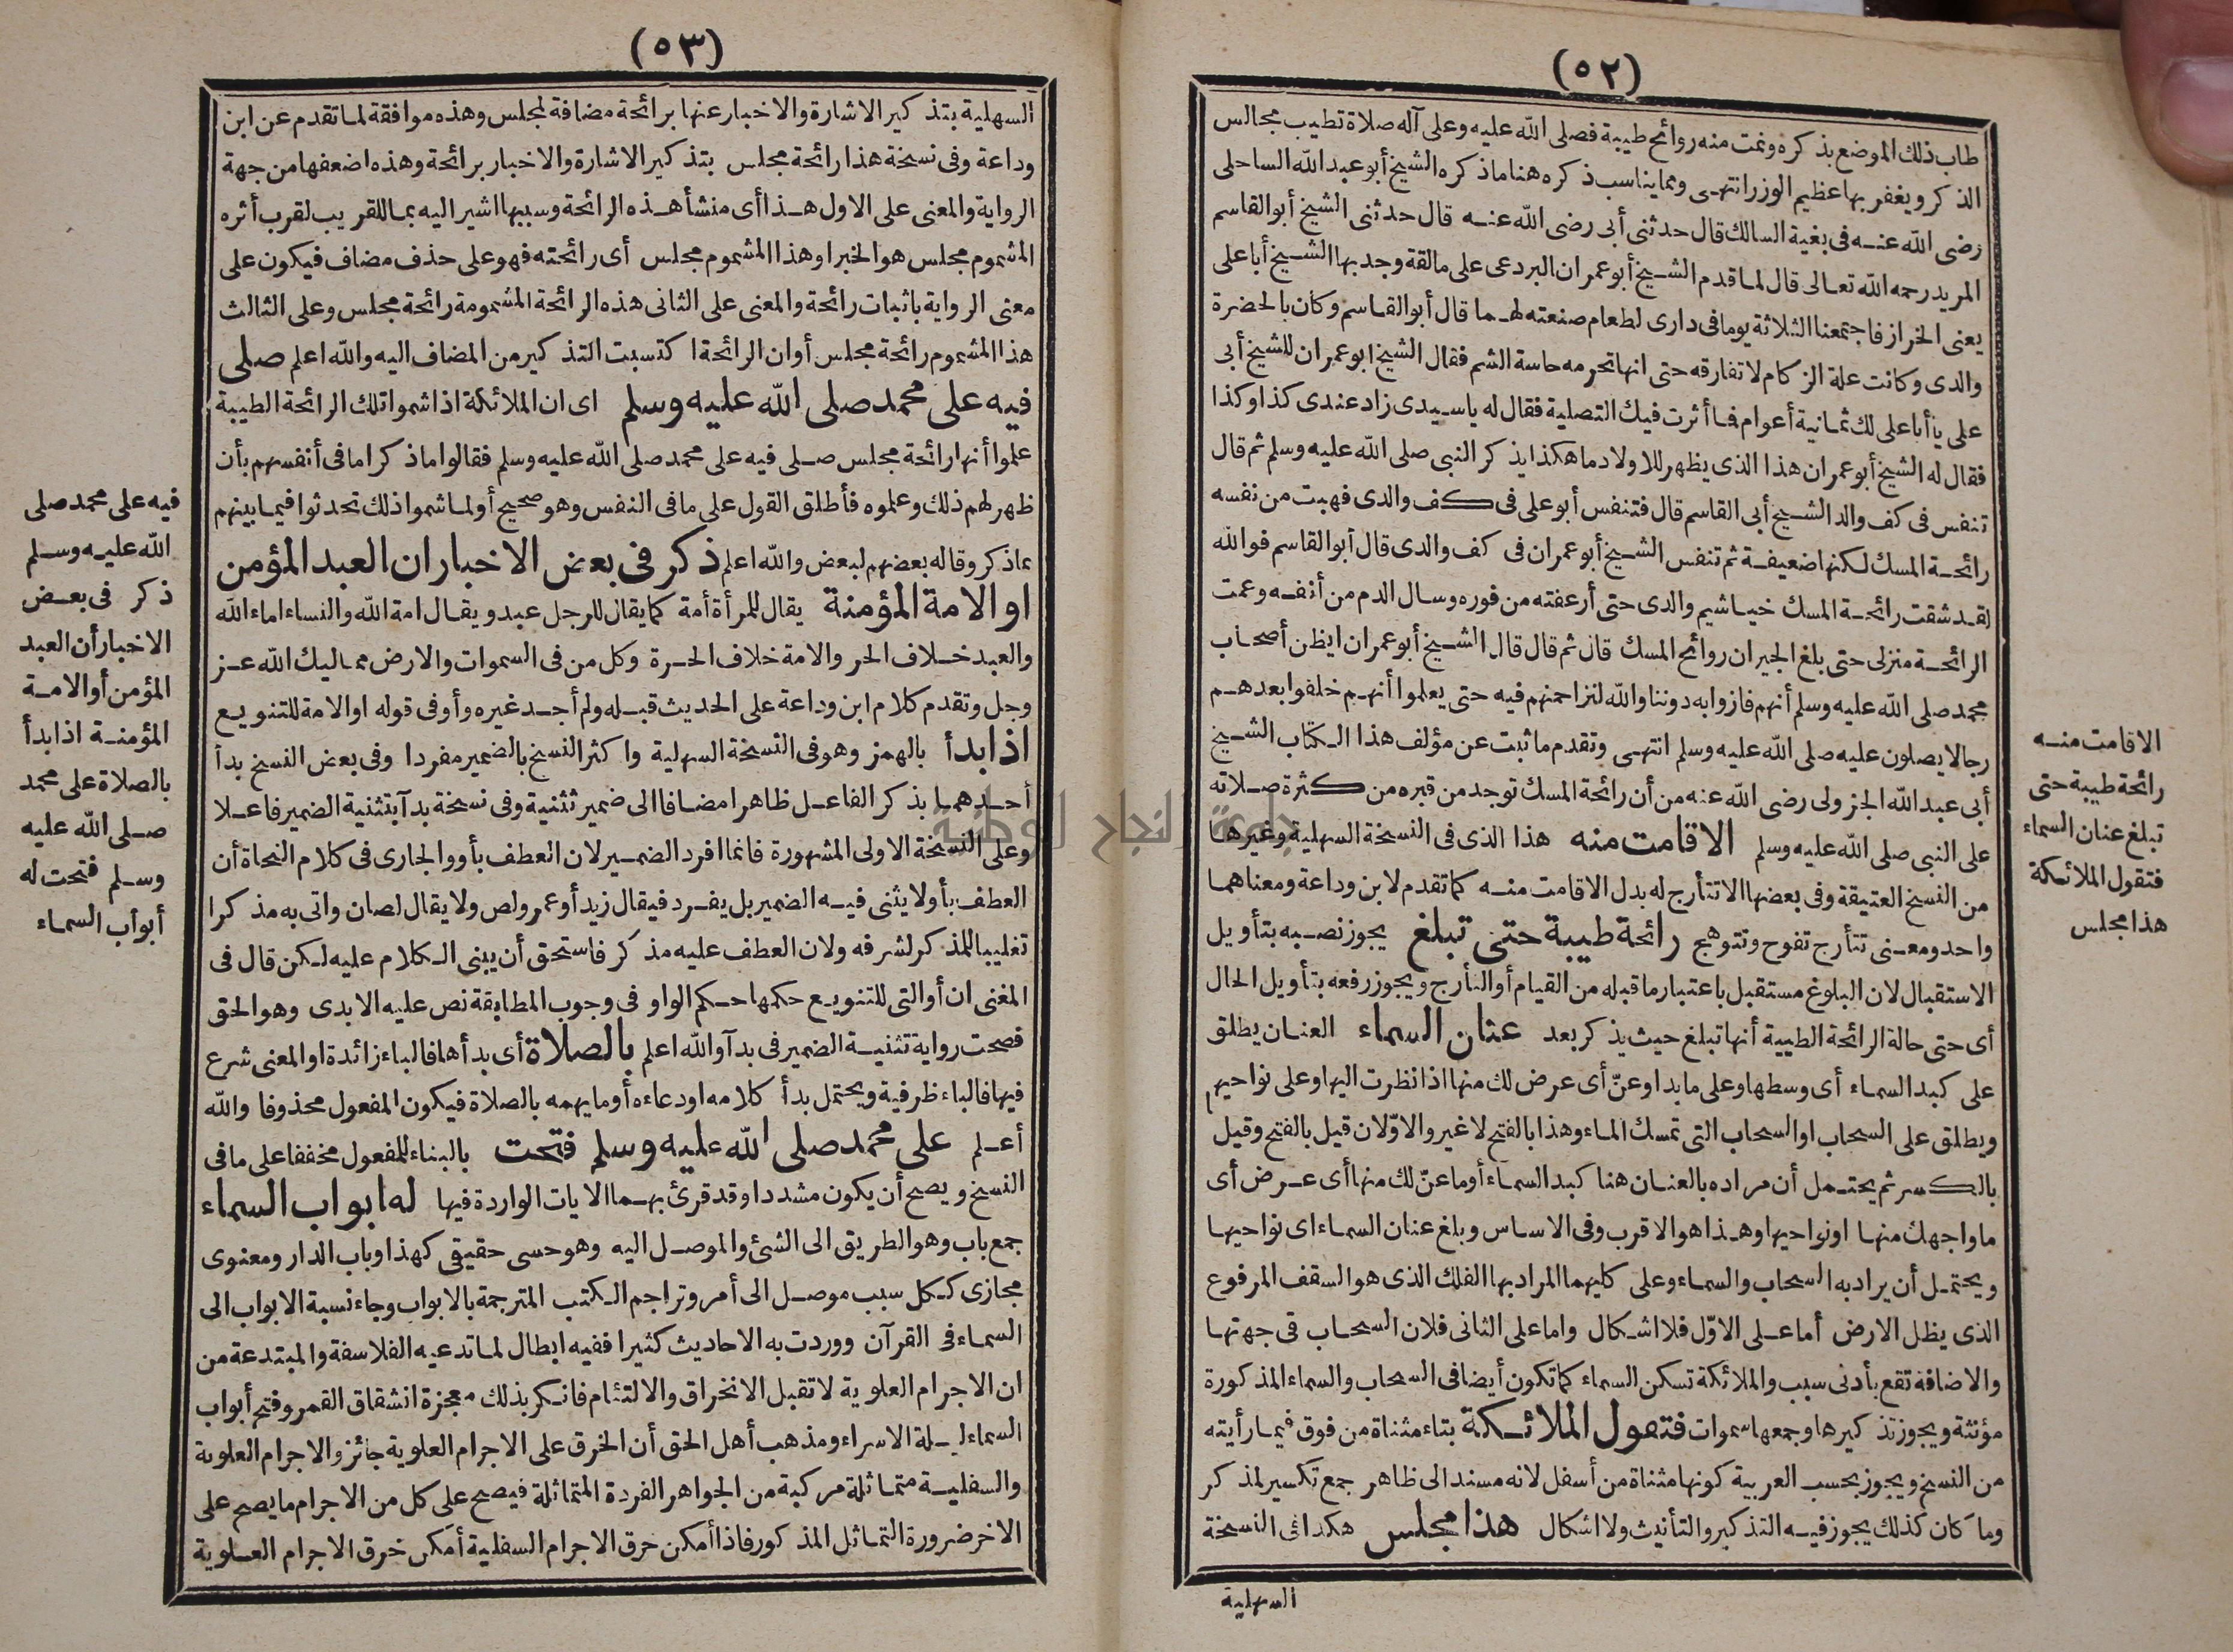 (٥٢)
طاب ذلك الموضع بذكره ونمت منه روائح طيبة فصلى الله عليه وعلى آله صلاة تطيب مجالس
الذكر ويغفر بها عظيم الوزر انتهى ومما يناسب ذكره هنا ما ذكره الشيخ أبو عبد الله الساحلى
رضى الله عنه فى بغية السالك قال حدثنى أبى رضى الله عنه قال حدثنى الشيخ أبو القاسم
المريد رحمه الله تعالى قال لما قدم الشيخ أبو عمران البردعى على مالقة وجد بها الشيخ أبا على
يعنى الخراز فاجتمعنا الثلاثة يوما فى دارى لطعام صنعته لهما قال أبو القاسم وكان بالحضرة
والدى وكانت علة الزكام لا تفارقه حتى انها تحرمه حاسة الشم فقال الشيخ ابو عمران للشيخ أبى
على يا أبا على لك ثمانية أعوام فما أثرت فيك التصلية فقال له يا سيدى زاد عندى كذا وكذا
فقال له الشيخ أبو عمران هذا الذى يظهر للاولاد ما هكذا يذكر النبى صلى الله عليه وسلم ثم قال
تنفس فى كف والد الشيخ أبى القاسم قال فتنفس أبو على فى كف والدى فهبت من نفسه
رائحة المسك لكنها ضعيفة ثم تنفس الشيخ أبو عمران فى كف والدى قال أبو القاسم فوالله
لقد شقت رائحة المسك خياشيم والدى حتى أرعفته من فوره وسال الدم من أنفه وعمت
الرائحة منزلى حتى بلغ الجيران روائح المسك قال ثم قال قال الشيخ أبو عمران ايظن أصحاب
محمد صلى الله عليه وسلم أنهم فازوا به دوننا والله لنزاحمنهم فيه حتى يعلموا أنهم خلفوا بعدهم
رجالا يصلون عليه صلى الله عليه وسلم انتهى وتقدم ما ثبت عن مؤلف هذا الكتاب الشيخ
أبى عبد الله الجزولى رضى الله عنه من أن رائحة المسك توجد من قبره من كثرة صلاته
على النبى صلى الله عليه وسلم الا قامت منه هذا الذى فى النسخة السهلية وغيرها
من النسخ العتيقة وفى بعضها الا تتأرج له بدل الا قامت منه كما تقدم لابن وداعة ومعناهما
واحد ومعنى تتأرج تفوح وتتوهج رائحة طيبة حتى تبلغ يجوز نصبه بتأويل
الاستقبال لان البلوغ مستقبل باعتبار ما قبله من القيام أو التأرج ويجوز رفعه بتأويل الحال
أى حتى حالة الرائحة الطيبة أنها تبلغ حيث يذكر بعد عنان السماء العنان يطلق
على كبد السماء أى وسطها وعلى ما بدا وعنّ أى عرض لك منها اذا نظرت اليها وعلى نواحيهم
ويطلق على السحاب او السحاب التى تمسك الماء وهذا بالفتح لا غير والاوّلان قيل بالفتح وقيل
بالكسر ثم يحتمل أن مراده بالعنان هنا كبد السماء أو ما عنّ لك منها أى عرض أى
ما واجهك منها او نواحيها وهذا هو الاقرب وفى الاساس وبلغ عنان السماء اى نواحيها
ويحتمل أن يراد به السحاب والسماء وعلى كليهما المراد بها الفلك الذى هو السقف المرفوع
الذى يظل الارض أما على الاوّل فلا اشكال واما على الثانى فلان السحاب فى جهتها
والاضافة تقع بأدنى سبب والملائكة تسكن السماء كما تكون أيضا فى السحاب والسماء المذكورة
مؤنثة ويجوز تذكيرها وجمعها سموات فتقول الملائكة بتاء مثناة من فوق فيما رأيته
من النسخ ويجوز بحسب العربية كونها مثناة من أسفل لانه مسند الى ظاهر جمع تكسير لمذكر
وما كان كذلك يجوز فيه التذكير والتأنيث ولا اشكال هذا مجلس هكذا فى النسخة
السهلية
الا قامت منه
رائحة طيبة حتى
تبلغ عنان السماء
فتقول الملائكة
هذا مجلس
(٥٣)
السهلية بتذكير الاشارة والاخبار عنها برائحة مضافة لمجلس وهذه موافقة لما تقدم عن ابن
وداعة وفى نسخة هذا رائحة مجلس بتذكير الاشارة والاخبار برائحة وهذه اضعفها من جهة
الرواية والمعنى على الاول هذا أى منشأ هذه الرائحة وسببها اشير اليه بما للقريب لقرب أثره
المشموم مجلس هو الخبر او هذا المشموم مجلس أى رائحته فهو على حذف مضاف فيكون على
معنى الرواية باثبات رائحة والمعنى على الثانى هذه الرائحة المشمومة رائحة مجلس وعلى الثالث
هذا المشموم رائحة مجلس أو ان الرائحة اكتسبت التذكير من المضاف اليه والله اعلم صلى
فيه على محمد صلى الله عليه وسلم اى ان الملائكة اذا شموا تلك الرائحة الطيبة
علموا أنها رائحة مجلس صلى فيه على محمد صلى الله عليه وسلم فقالوا ما ذكر اما فى أنفسهم بأن
ظهر لهم ذلك وعلموه فأطلق القول على ما فى النفس وهو صحيح أو لما شموا ذلك تحدثوا فيما بينهم
بما ذكر وقاله بعضهم لبعض والله اعلم ذكر فى بعض الاخبار ان العبد المؤمن
او الامة المؤمنة يقال للمرأة أمة كما يقال للرجل عبد ويقال امة الله والنساء اماء الله
والعبد خلاف الحر والامة خلاف الحرة وكل من فى السموات والارض مماليك الله عز
وجل وتقدم كلام ابن وداعة على الحديث قبله ولم أجد غيره وأو فى قوله او الامة للتنويع
اذا بدأ بالهمز وهو فى النسخة السهلية واكثر النسخ بالضمير مفردا وفى بعض النسخ بدأ
أحدهما بذكر الفاعل ظاهرا مضافا الى ضمير تثنية وفى نسخة بدآ بتثنية الضمير فاعلا
وعلى النسخة الاولى المشهورة فانما افرد الضمير لان العطف بأو والجارى فى كلام النحاة أن
العطف بأو لا يثنى فيه الضمير بل يفرد فيقال زيد أو عمرو لص ولا يقال لصان واتى به مذكرا
تغليبا للمذكر لشرفه ولان العطف عليه مذكر فاستحق أن يبنى الكلام عليه لكن قال فى
المغنى ان أو التى للتنويع حكمها حكم الواو فى وجوب المطابقة نص عليه الابدى وهو الحق
فصحت رواية تثنية الضمير فى بدآ والله اعلم بالصلاة أى بدأها فالباء زائدة او المعنى شرع
فيها فالباء ظرفية ويحتمل بدأ كلامه او دعاءه أو ما يهمه بالصلاة فيكون المفعول محذوفا والله
أعلم على محمد صلى الله عليه وسلم فتحت بالبناء للمفعول مخففا على ما فى
النسخ ويصح أن يكون مشددا وقد قرئ بهما الايات الواردة فيها له ابواب السماء
جمع باب وهو الطريق الى الشئ والموصل اليه وهو حسى حقيقى كهذا وباب الدار ومعنوى
مجازى ككل سبب موصل الى أمر وتراجم الكتب المترجمة بالابواب وجاء نسبة الابواب الى
السماء فى القرآن ووردت به الاحاديث كثيرا ففيه ابطال لما تدعيه الفلاسفة والمبتدعة من
ان الاجرام العلوية لا تقبل الانخراق والالتئام فانكر بذلك معجزة انشقاق القمر وفتح أبواب
السماء ليلة الاسراء ومذهب أهل الحق أن الخرق على الاجرام العلوية جائز والاجرام العلوية
والسفلية متماثلة مركبة من الجواهر الفردة المتماثلة فيصح على كل من الاجرام ما يصح على
الاخر ضرورة التماثل المذكور فاذا أمكن خرق الاجرام السفلية أمكن خرق الاجرام العلوية
فيه على محمد صلى
الله عليه وسلم
ذكر فى بعض
الاخبار أن العبد
المؤمن أو الامة
المؤمنة اذا بدأ
بالصلاة على محمد
صلى الله عليه
وسلم فتحت له
أبواب السماء
جامعة النجاح الوطنية